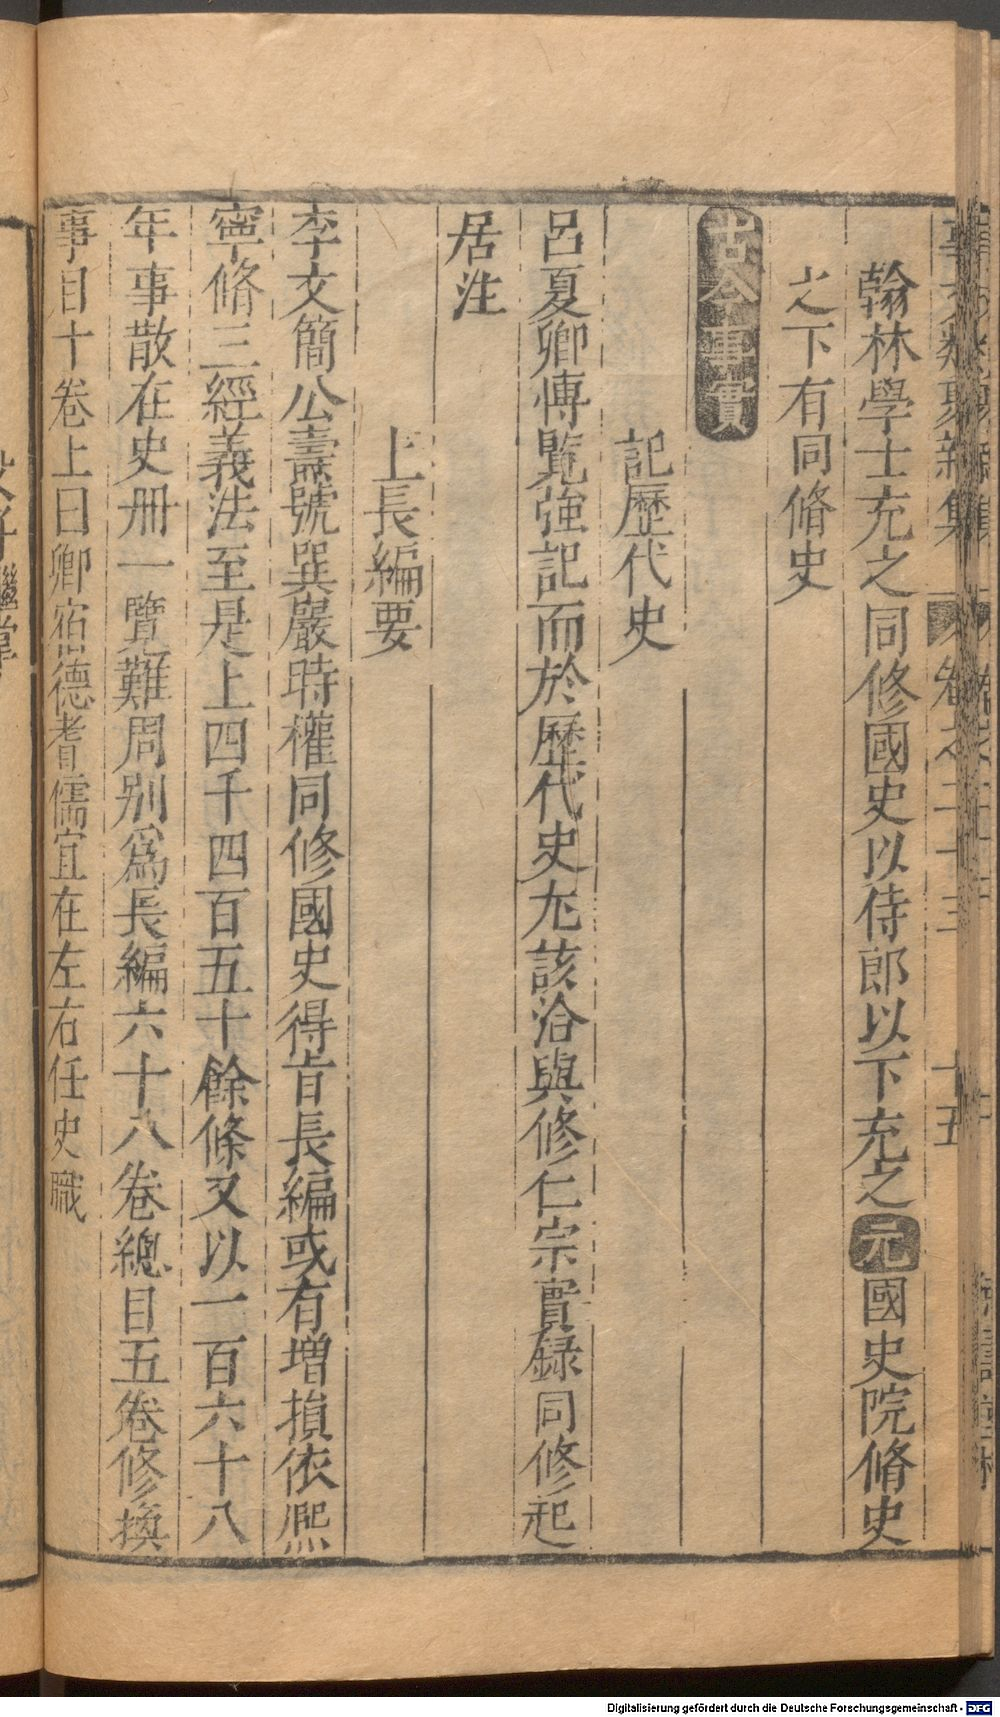 事文類聚新集 卷之二十三 十五
翰林學士充之同修國史以侍郎以下充之元國史院脩史
之下有同脩史
古今事實
記歷代史
呂夏卿博覧強記而於歷代史尤該洽與修仁宗實録同修起
居注
上長編要
李文簡公燾號巽巖時權同修國史得旨長編或有增損依熈
寜脩三經義法至是上四千四百五十餘條又以一百六十八
年事散在史册一覽難周别爲長編六十八卷總目五卷修換
事目十卷上曰卿宿德耆儒宜在左右任史職
Digitalisierung gefördert durch die Deutsche Forschungsgemeinschaft - DFG